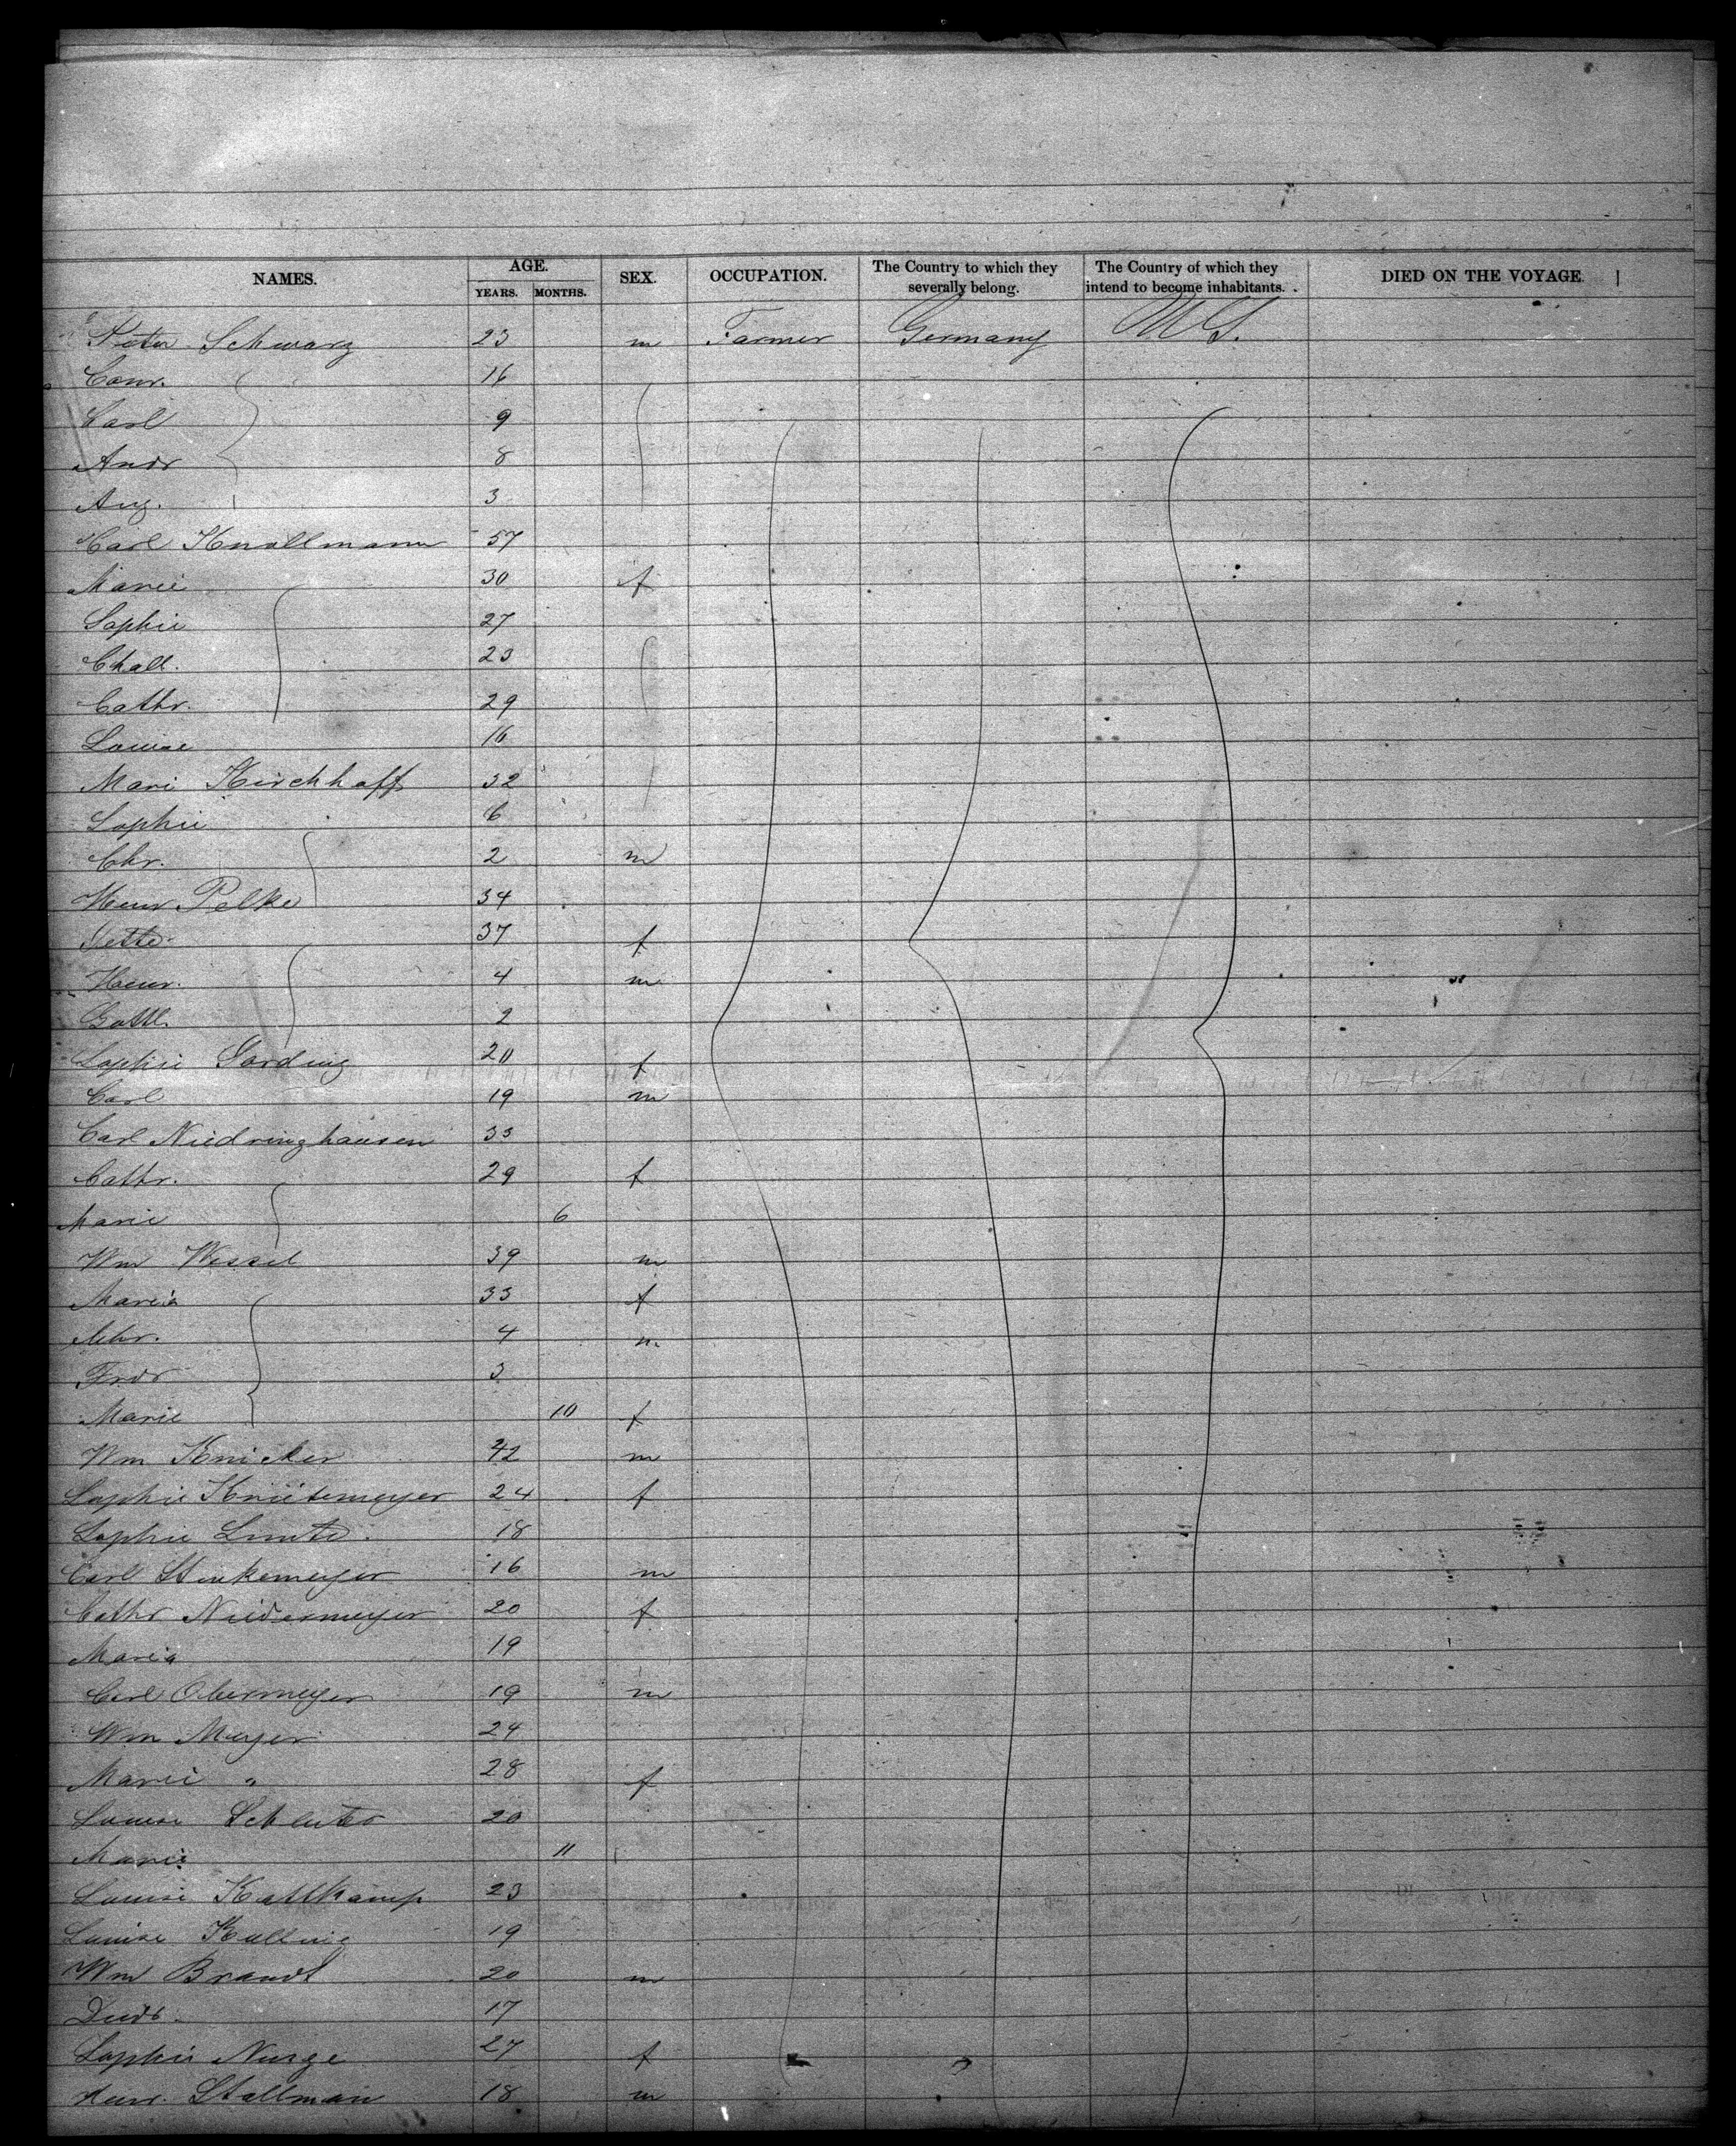 NAMES. AGE. SEX. OCCUPATION. The Country to which they severally belong. The Country of which they intend to become inhabitants. DIED ON THE VOYAGE
YEARS. MONTHS.
Peter Schwarz 23 m Farmer Germany U S.
Conr. 16
Carl 9
Andr 8
Aug. 3
Carl Knollmann 57
Marie 30 f
Sophie 27
23
Cathr. 29
Louise 16
Mari Kirchhoff 32
Sophie 6
Chr. 2 m
Henr Pelke 34
Jette 37 f
Henr. 4 m
Gottl. 2
Sophie Sording 20 f
Carl 19 m
Carl Niedringhausen 33
Cathr. 29 f
Marie 6
Wm Wessel 39 m
Maria 33 f
4 m
Fredr 3
Marie 10 f
Wm Knicker 42 m
Sophie 24 f
Sophie 18
Carl Stinkemeyer 16 m
Cathr Niedermeyer 20 f
Maria 19
Carl Obermeyer 19 m
Wm Meyer 24
Marie " 28 f
Louise Schluter 20
Marie 11
Louise Kattkamp 23
Louise Kolling 19
Wm Brandt 20 m
17
Sophie Nurge 27 f
Henr. Stallman 18 m